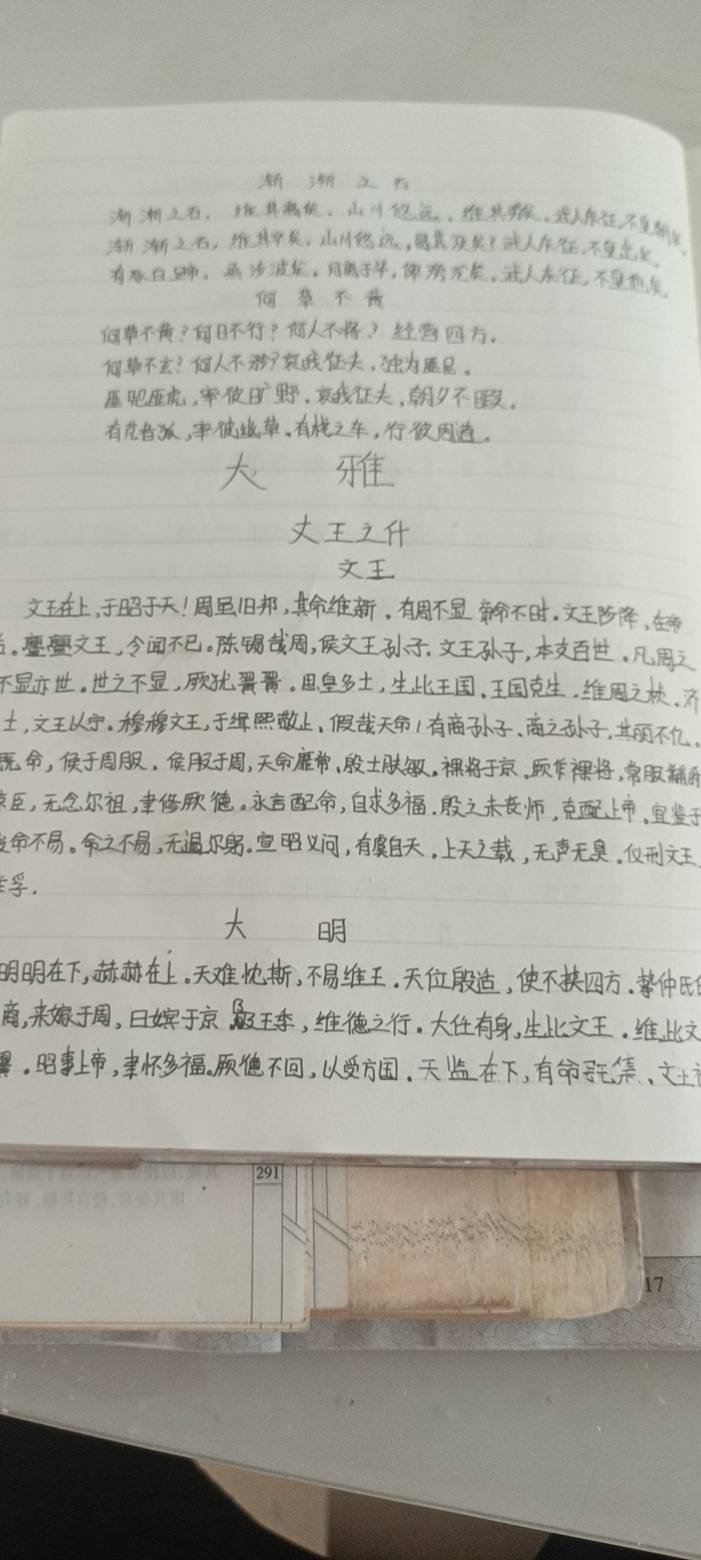 渐渐之石
渐渐之石，维其高矣。山川悠远，维其劳矣。武人东征，不皇朝矣。
渐渐之石，维其卒矣。山川悠远，曷其没矣？武人东征，不皇出矣。
有豕白蹄，烝涉波矣。月离于毕，俾滂沱矣。武人东征，不皇他矣。
何草不黄
何草不黄？何日不行？何人不将？经营四方。
何草不玄？何人不矜？哀我征夫，独为匪民。
匪兕匪虎，率彼旷野。哀我征夫，朝夕不暇。
有芃者狐，率彼幽草。有栈之车，行彼周道。
大雅
文王之什
文王
文王在上，于昭于天！周虽旧邦，其命维新。有周不显 帝命不时。文王陟降，在帝
右。亹亹文王，令闻不已。陈锡哉周，侯文王孙子。文王孙子，本支百世。凡周之
不显亦世。世之不显，厥犹翼翼。思皇多士，生此王国。王国克生。维周之桢。济
士，文王以宁。穆穆文王，于缉熙敬止。假哉天命！有商孙子。商之孙子，其丽不亿。
既命，侯于周服。侯服于周，天命靡常。殷士肤敏。祼将于京。厥作祼将，常服黼
臣，无念尔祖，聿修厥德。永言配命，自求多福。殷之未丧师，克配上帝。宜鉴于
骏命不易。命之不易，无遏尔躬。宣昭义问，有虞自天。上天之载，无声无臭。仪刑文王
孚。
大明
明明在下，赫赫在上。天难忱斯，不易维王。天位殷适，使不挟四方。挚仲氏任
商，来嫁于周，曰嫔于京 乃及王季，维德之行。大任有身，生此文王。维此文
翼。昭事上帝，聿怀多福。厥德不回，以受方国。天监在下，有命既集、文王
291
17